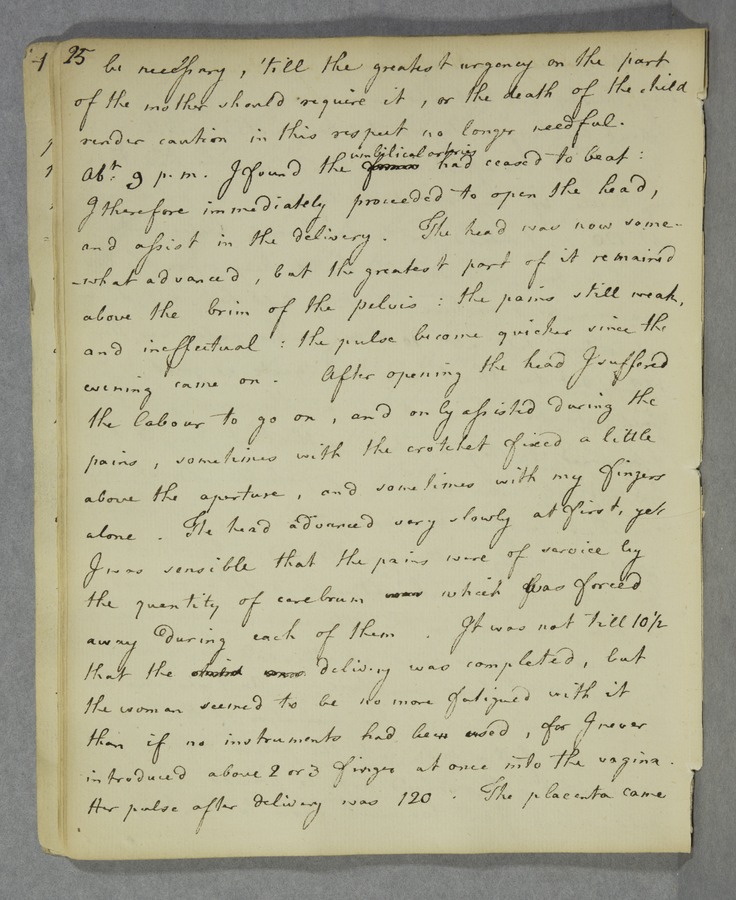 25 be necessary, 'till the greatest urgency on the part
of the mother should require it, or the death of the child
render caution in this respect no longer needful.
Abt. 9 p.m. I found the umbilical arteries had ceased to beat:
I therefore immediately proceeded to open the head,
and assist in the delivery. The head was now some-
-what advanced, but the greatest part of it remained
above the brim of the pelvis: the pains still weak,
and ineffectual: the pulse become quicker since the
evening came on. After opening the head I suffered
the labour to go on, and only assisted during the
pains, sometimes with the crotchet fixed a little
above the aperture, and sometimes with my fingers
alone. The head advanced very slowly at first, yet
I was sensible that the pains were of service by
the quantity of cerebrum which was forced
away during each of them. It was not till 10 1/2
that the delivery was completed, but
the woman seemed to be no more fatigued with it
than if no instruments had been used, for I never
introduced above 2 or 3 fingers at once into the vagina.
Her pulse after delivery was 120. The placenta came